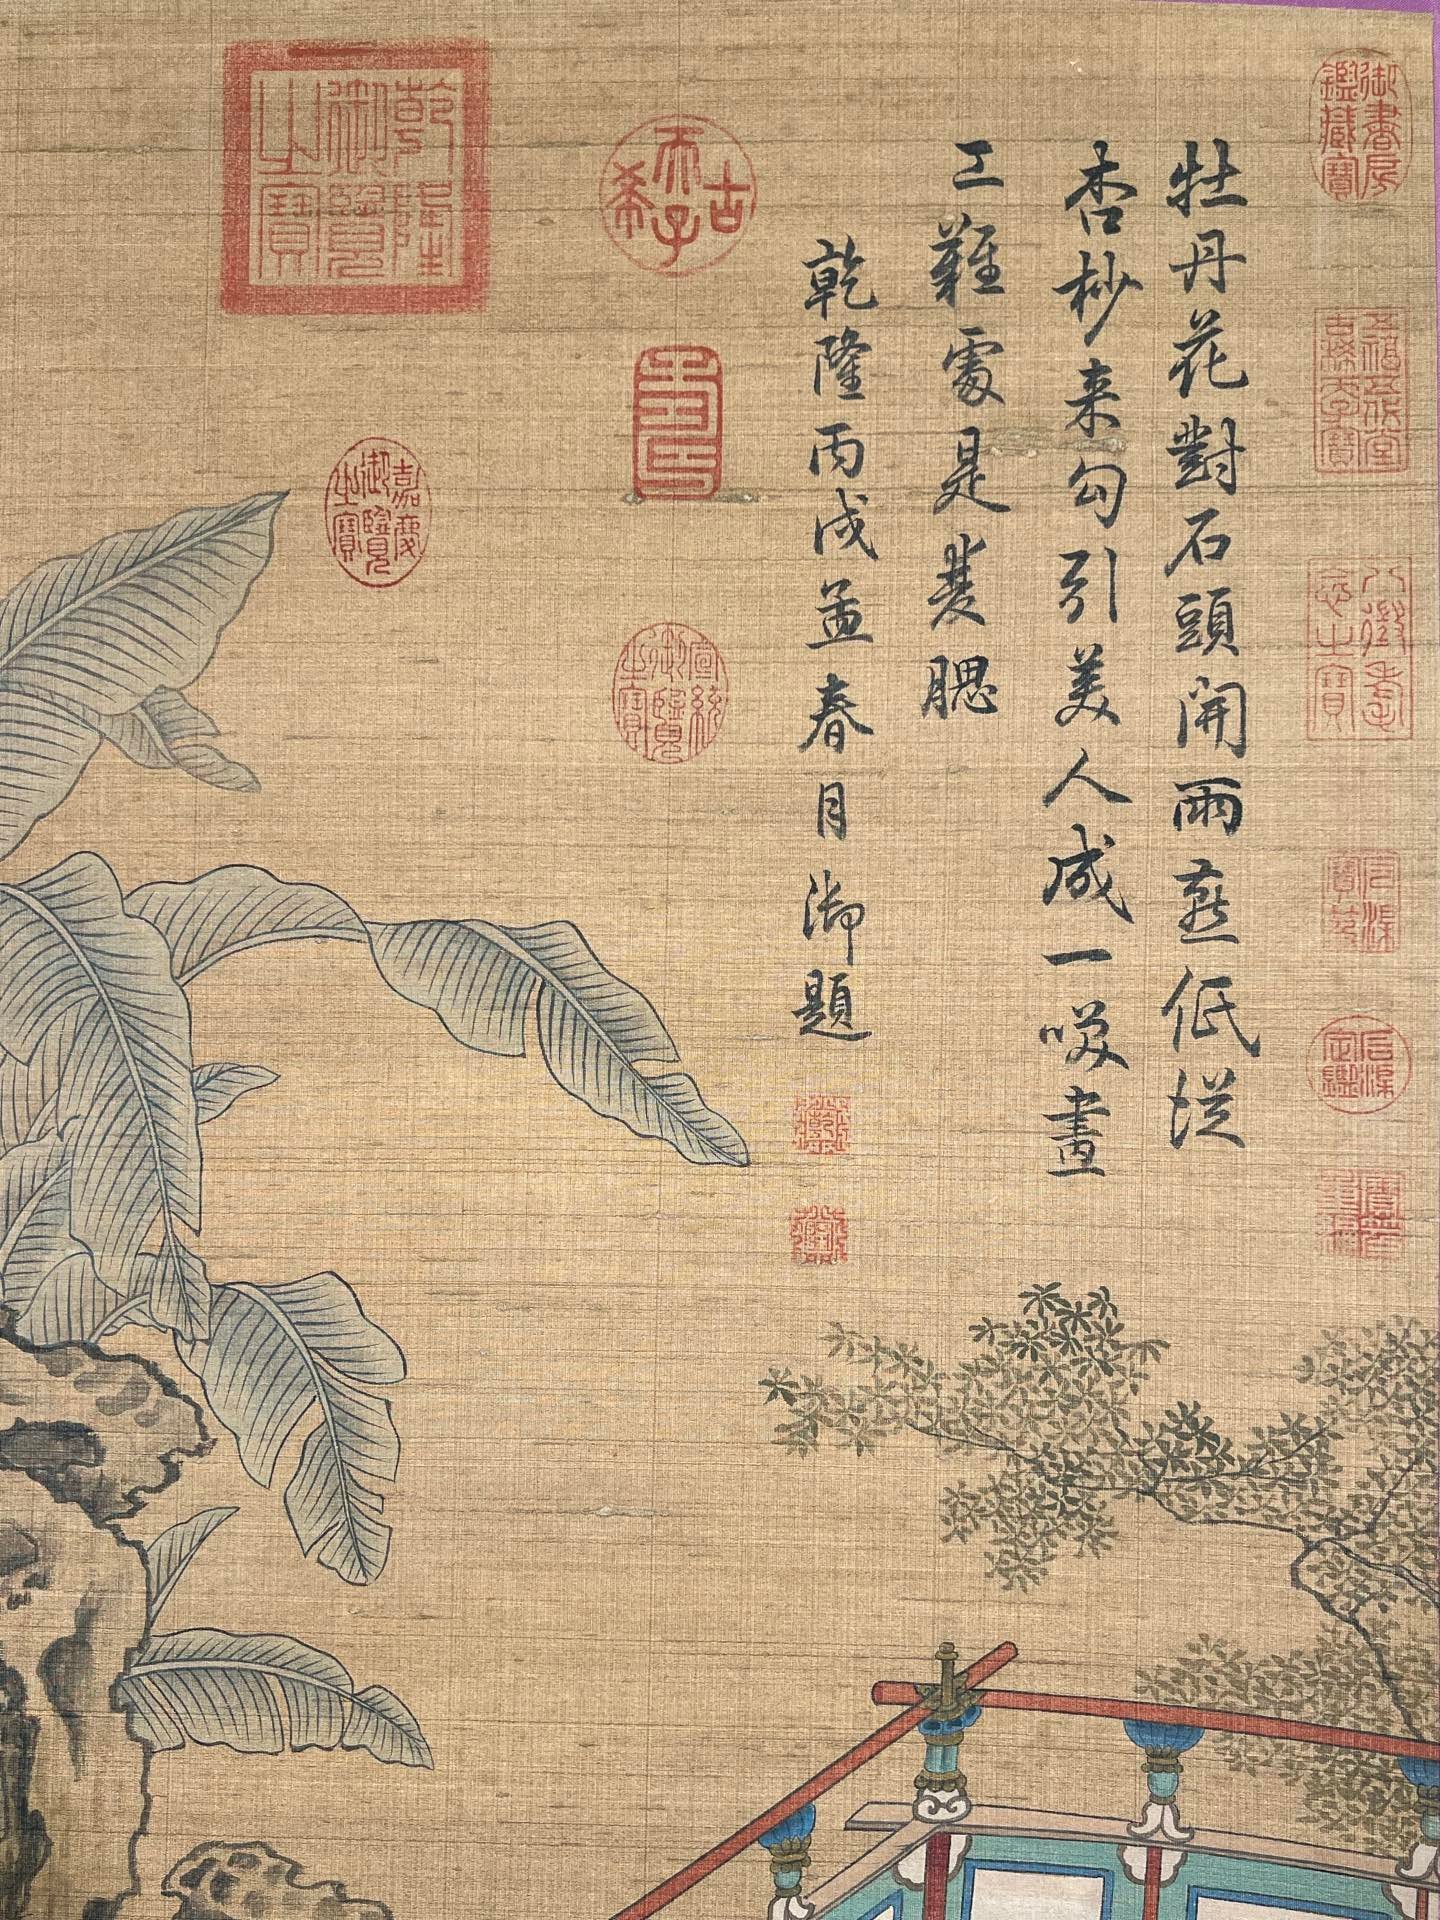 牡丹花對石頭開雨燕低從
杏杪来勾引美人成一㗛畫
工難處是裴腮
乾隆丙戌孟春月御題
古希天子
壽
乾隆御覽之寶
嘉慶御覽之寶
宣統御覽之寶
御書房鑑藏寶
五福五代堂古稀天子寶
八徵耄念之寶
石渠寶笈
石渠定鑑